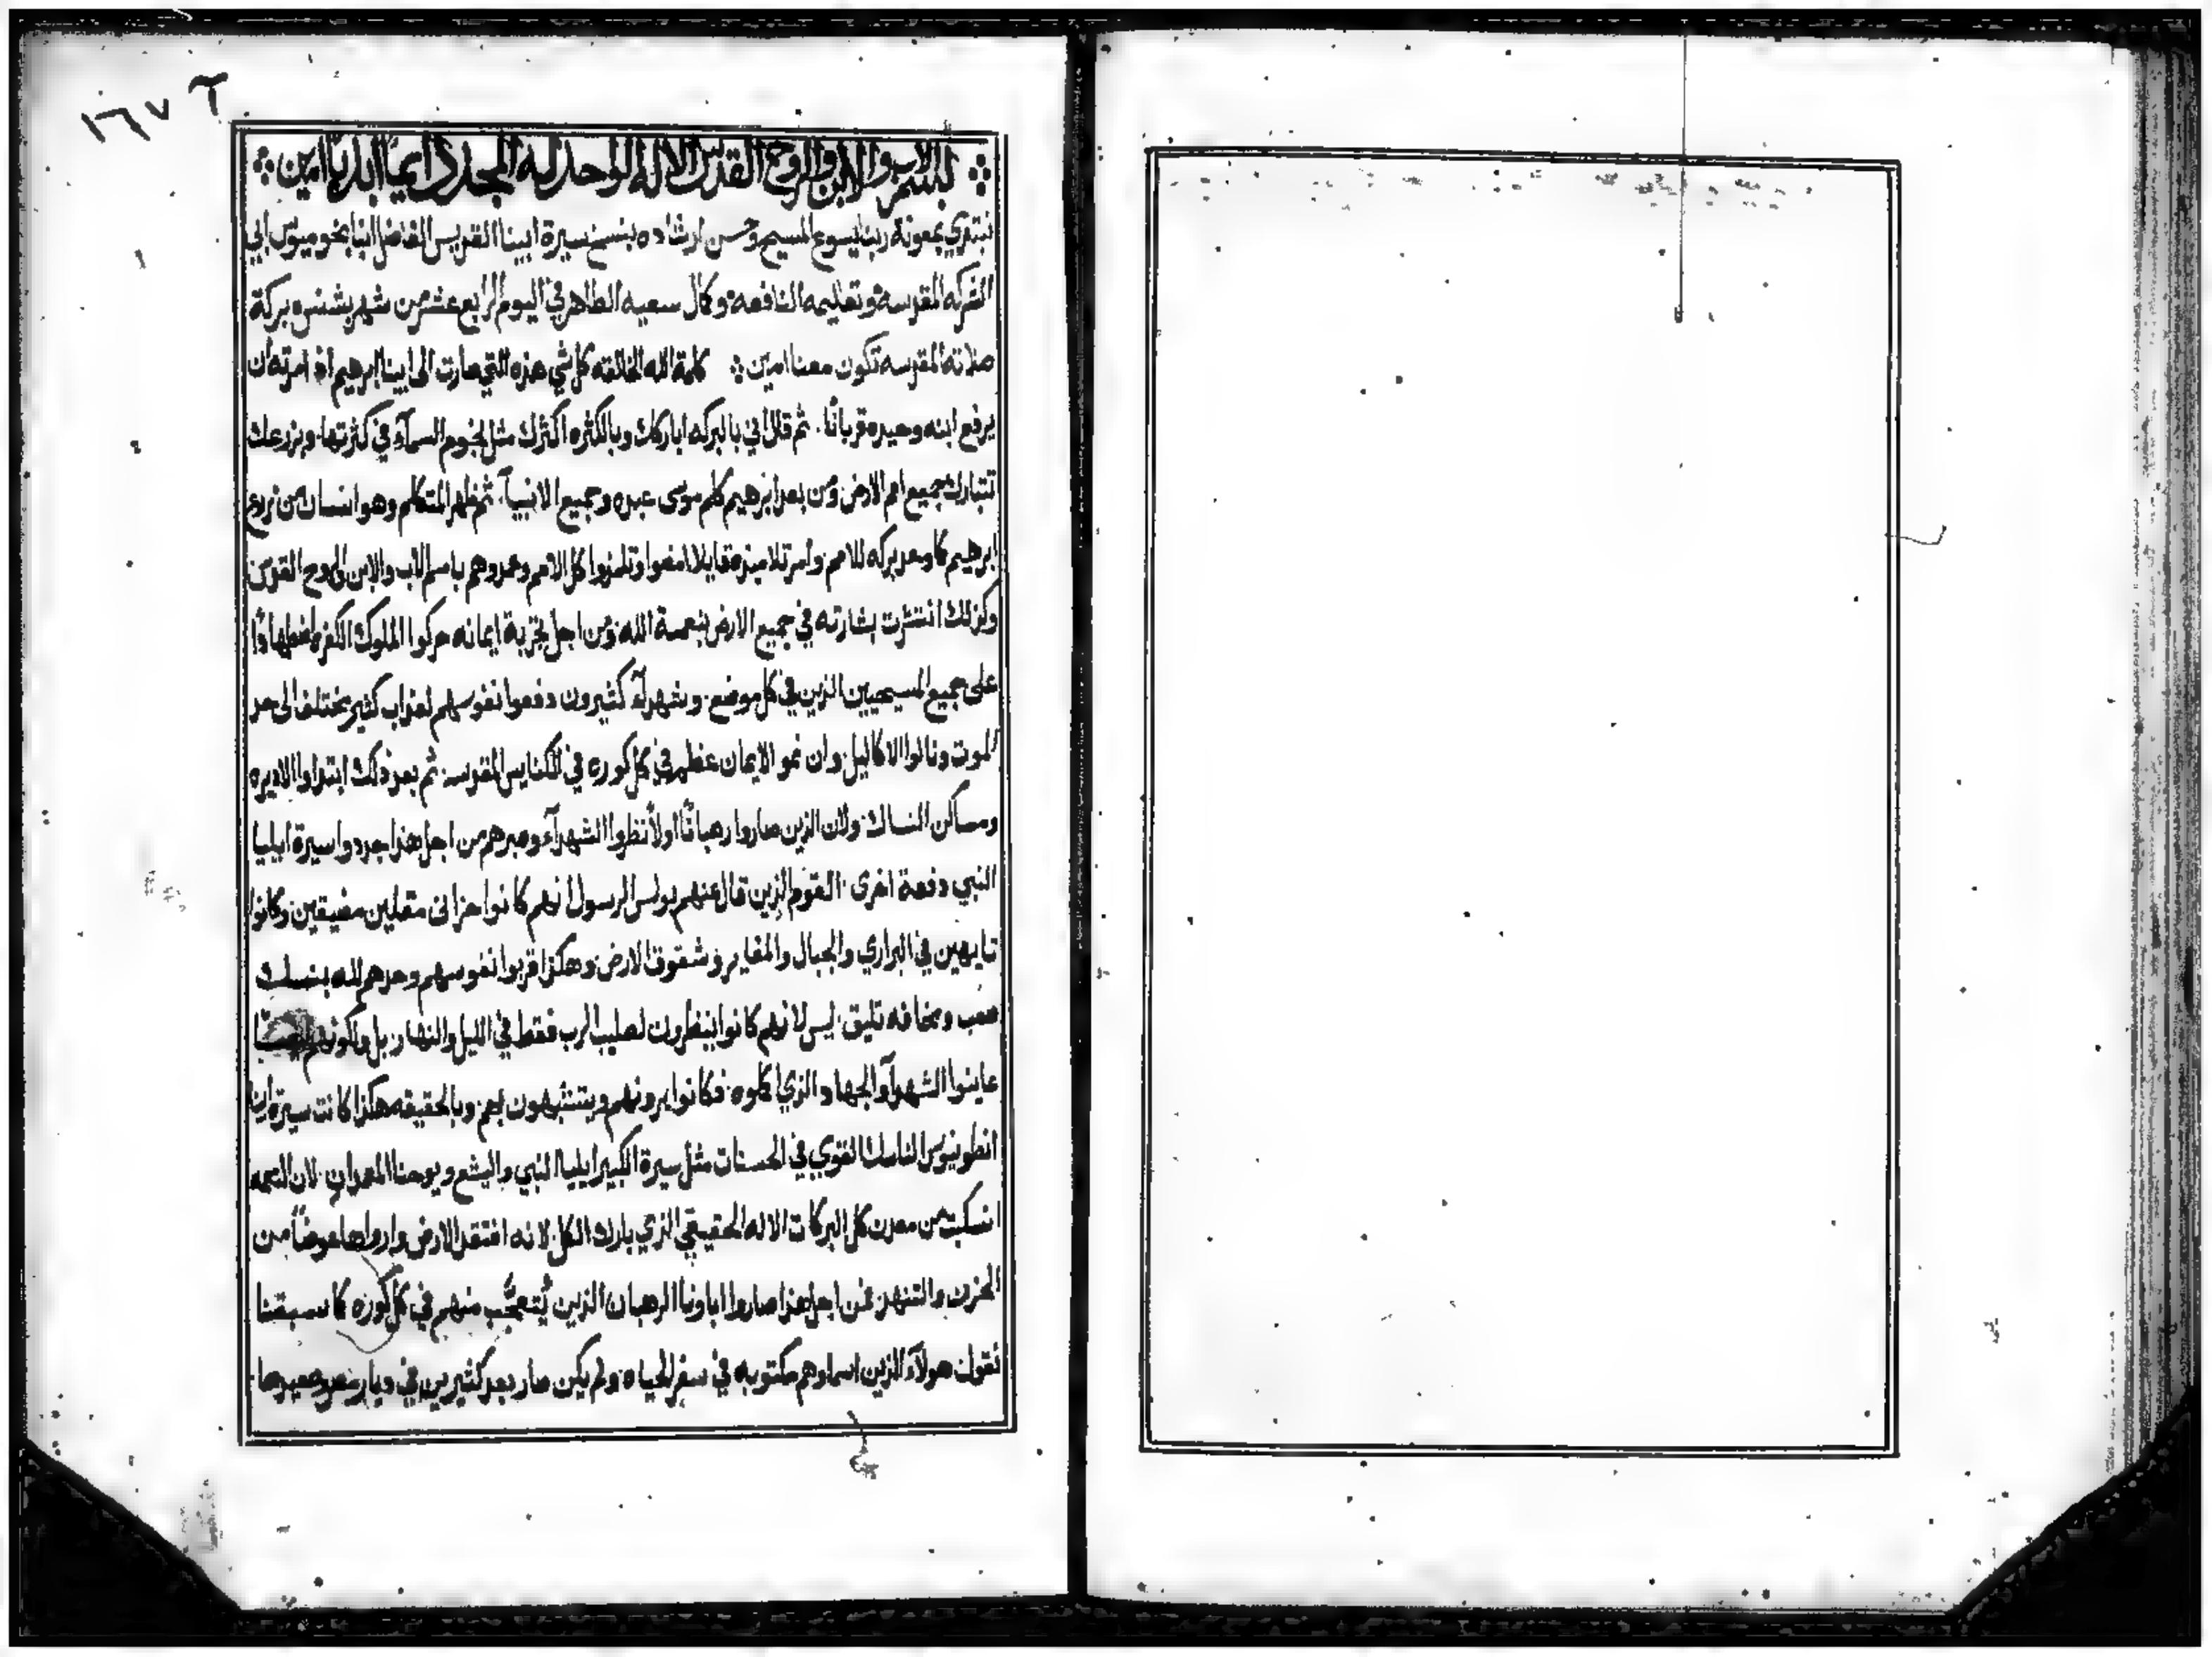 ١٦٧
بسم الاب والابن والروح القدس الاله الواحد له المجد دايمًا ابديًا امين
نبتدي بمعونة ربنا يسوع المسيح وحسن ارشاده بنسخ سيرة ابينا القديس الفاضل انبا بخوميوس ابي
الشركه المقدسه وتعاليمه النافعه وكمال سعيه الطاهر في اليوم الرابع عشر من شهر بشنس بركة
صلاته المقدسه تكون معنا امين كلمة الله الخالقه كل شي هذه التي صارت الى ابينا ابرهيم اذ امرته ان
يرفع ابنه وحيده قربانًا. ثم قال اني بالبركه اباركك وبالكثره اكثرك مثل نجوم السمآء في كثرتها. وبزرعك
تتبارك جميع امم الارض ومن بعد ابرهيم كلم موسى عبده وجميع الانبيآ. ثم ظهر المتكلم وهو انسان من زرع
ابرهيم كما وعد بركه للامم وامر تلاميذه قايلا امضوا وتلمذوا كل الامم وعمدوهم باسم الاب والابن والروح القدس
وكذلك انتشرت بشارته في جميع الارض بنعمة الله ومن اجل تجربة ايمانه حركوا الملوك الكفره اضطهادًا
على جميع المسيحيين الذين في كل موضع. وشهدآء كثيرون دفعوا نفوسهم لعذاب كثير مختلف الى حد
الموت ونالوا الاكاليل. وان نمو الايمان عظم في كل كوره في الكنايس المقدسه. ثم بعد ذلك ابتداوا الاديره
ومساكن النساك. ولان الذين صاروا رهبانًا اولًا نظروا الشهدآء وصبرهم من اجل هذا جددوا سيرة ايليا
النبي دفعة اخرى. القوم الذين قال عنهم بولس الرسول انهم كانوا حزانى متقلين مضيقين وكانوا
تايهين في البراري والجبال والمغاير وشقوق الارض. وهكذا قربوا نفوسهم وحدهم لله بنسك
صعب ومخافه تليق. ليس لانهم كانوا ينظرون لصليب الرب فقط في الليل والنهار بل ولكونهم ايضًا
عاينوا الشهدآء والجهاد الذي كملوه. فكانوا يرونهم ويتشبهون بهم. وبالحقيقه هكذا كانت سيرة انبا
انطونيوس الناسك القوي في الحسنات مثل سيرة الكبير ايليا النبي واليشع ويوحنا المعمدان. لان النعمه
انسكبت من معدن كل البركات الاله الحقيقي الذي بارك الكل لانه افتقد الارض وارواها عوضًا من
الحزن والتنهد. فمن اجل هذا صاروا اباونا الرهبان الذين يُتعجَّب منهم في كل كوره كما سبقنا
نقول هولآء الذين اسماوهم مكتوبه في سفر الحياه ولم يكن صار بعد كثيرين في ديار مصر وصعيدها